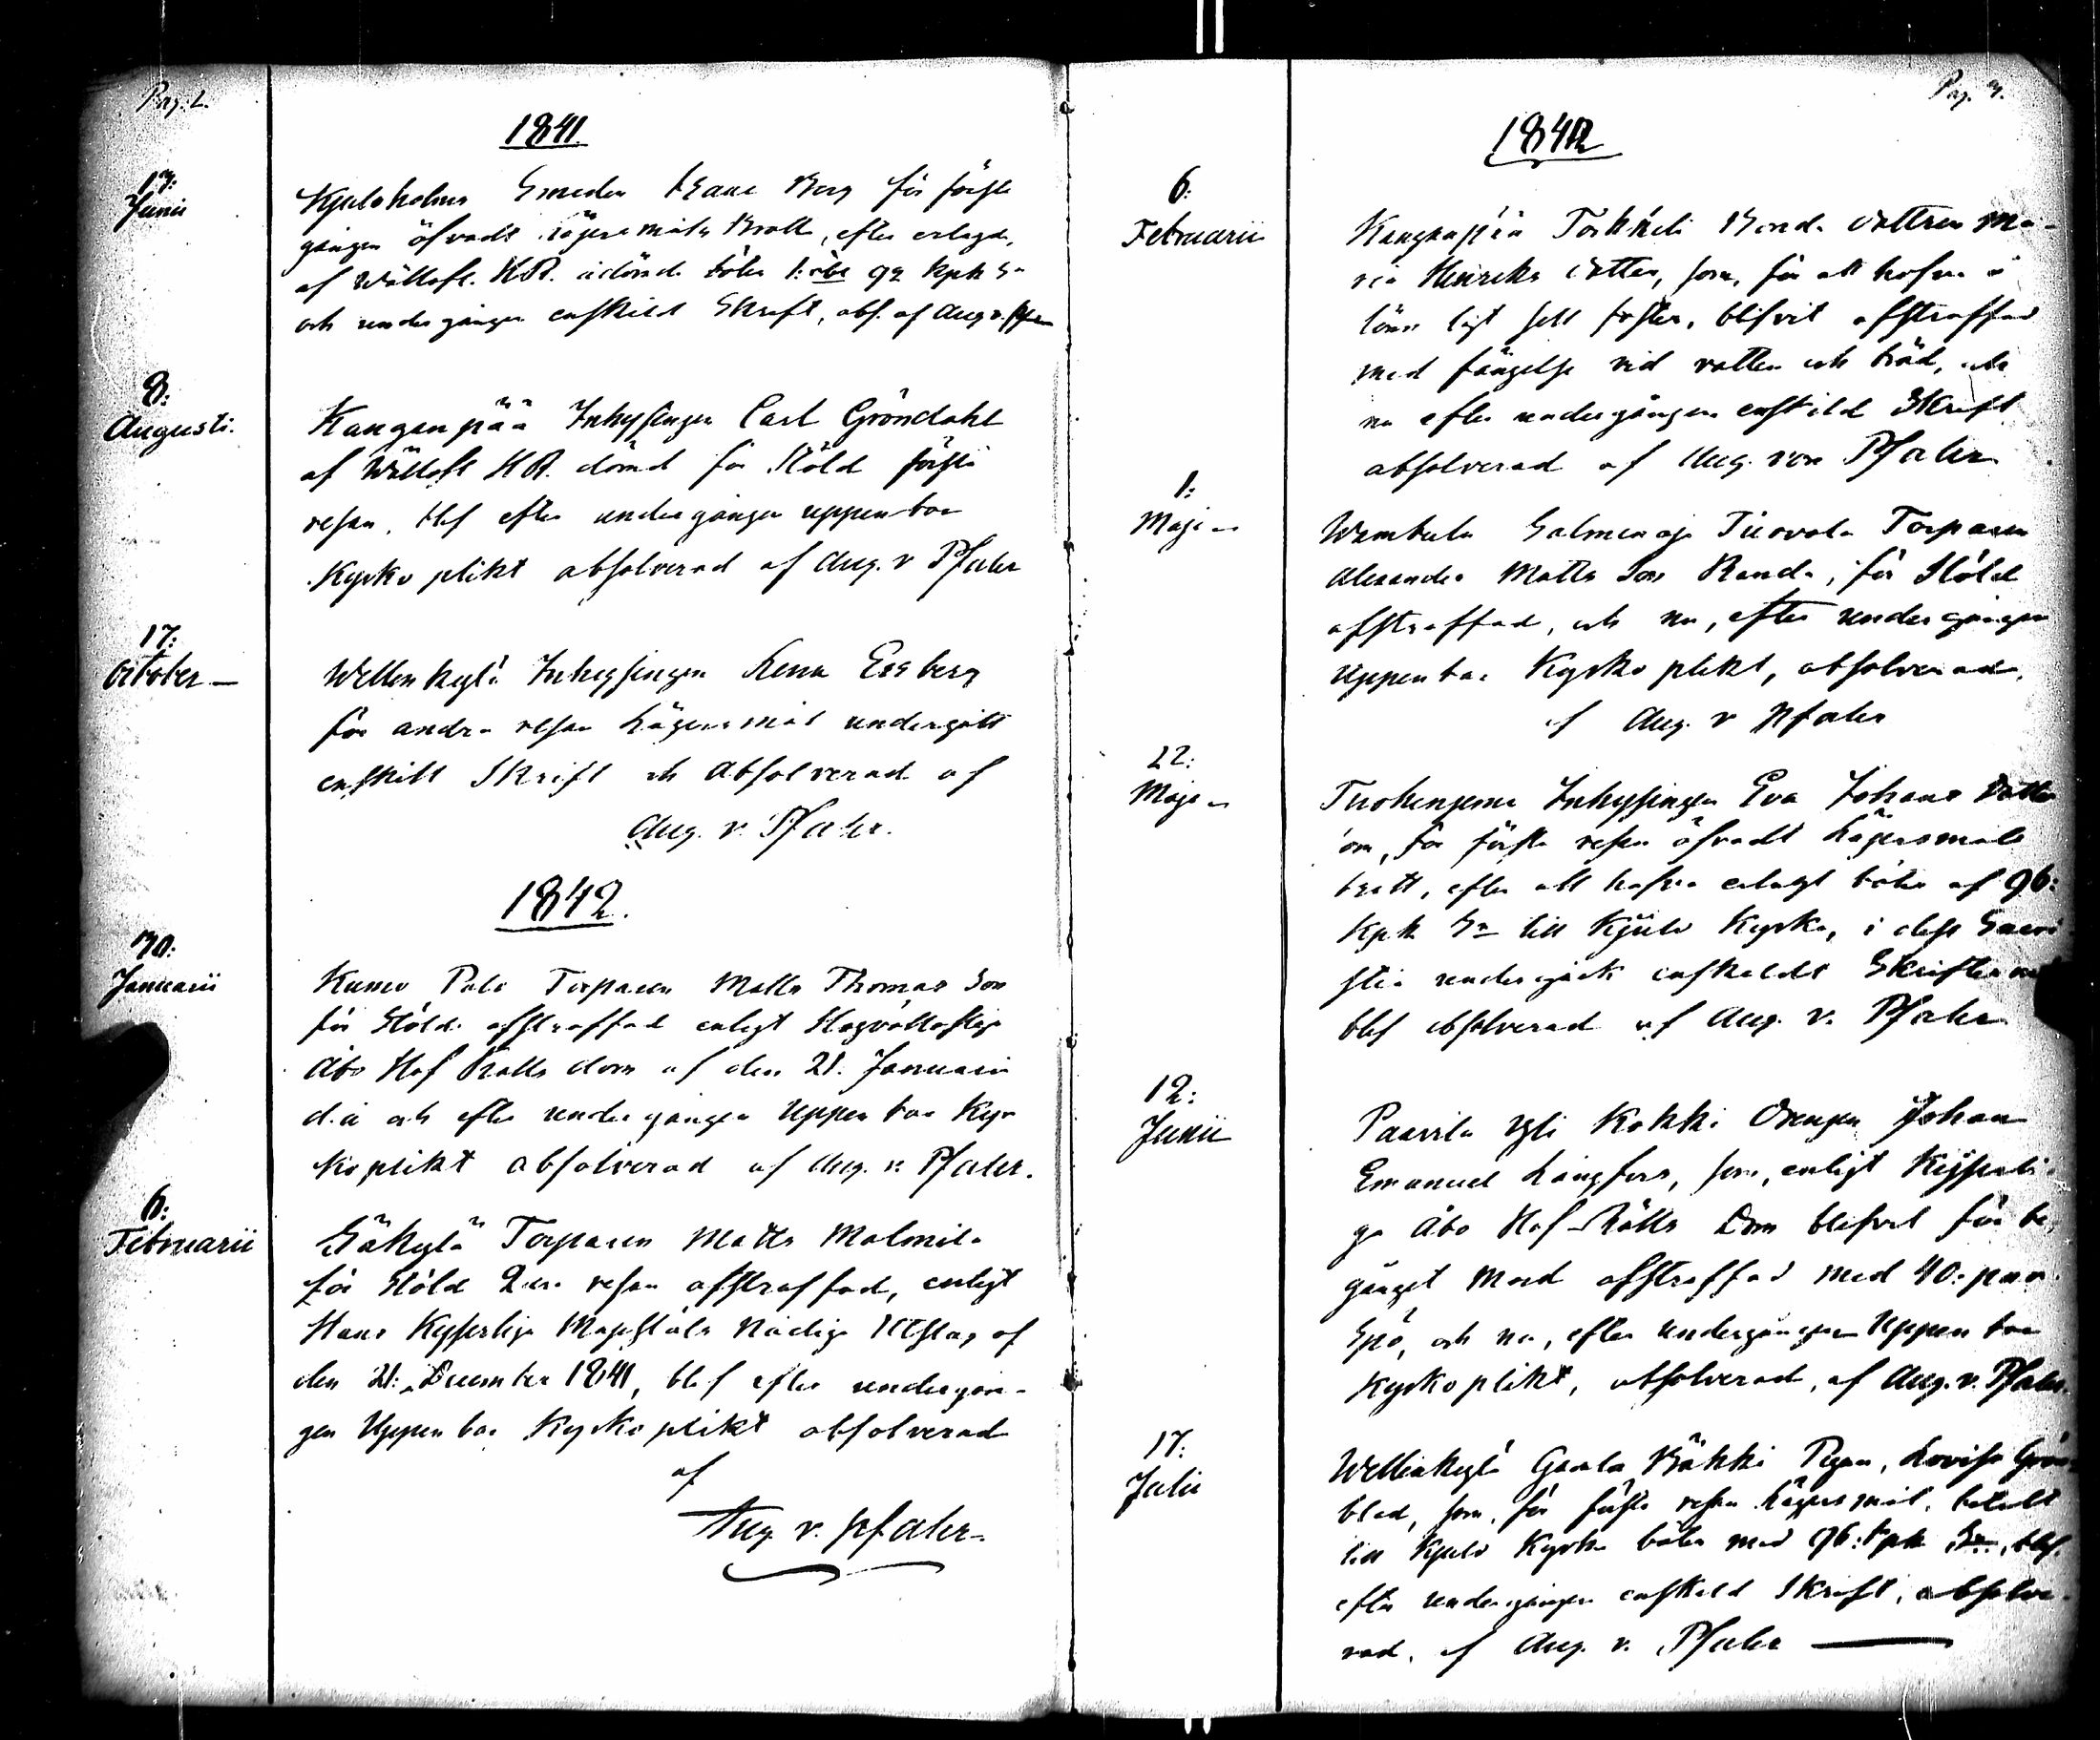 Pag. 2.
1841.
13:
Junii
Kjuloholms Smeden Isaac Berg för förste
gången öfvadt Lägersmåls Brott, efter erlagde,
af Wällofl. H.R. ådömde böter 1: Rbl 92 kpk Sr
och undergången enskilt Skrift, abs. af Aug. v. Pfaler
8:
Augusti.
Kangenpää Inhysingen Carl Gröndahl
af Wällofl H.R. dömd för Stöld förste
resan, blef efter undergången uppenbar
Kyrko plikt absolverad af Aug. v Pfaler
17:
October
Wellenkylä Inhysingen Lena Essberg
för andra resan Lägersmål undergått
enskilt Skrift och Absolverad af
Aug. v. Pfaler.
1842.
30:
Januarii
Kumo Torparen Matts Thomas Son
för Stöld afstraffad enligt Högvällofliga
Åbo Hof Rätts dom af den 21. Januarii
d.å och efter undergången Uppenbar Kyr
koplikt absolverad af Aug. v. Pfaler.
6:
Februarii
Säkylä Torparen Matts Malmila
för Stöld 2:dra resan afstraffad, enligt
Hans Kejserliga Majestäts Nådiga Utslag af
den 21: December 1841, blef efter undergån-
gen Uppenbar Kyrko plikt absolverad
af
Aug v. Pfaler.
Pag. 3.
1842
6:
Februarii
Kangenpää Torkkeli Bonde dottren Ma-
ria Henriks dotter, som, för att hafva å
lönn lagt sitt foster, blifvit afstraffad
med fängelse vid vatten och bröd, och
nu efter undergången enskild Skrift
absolverad af Aug. von Pfaler
1:
Maji
Wambula Salmenoja Tuovola Torparen
Alexander Matts Son Randa, för Stöld
afstraffad, och nu, efter undergången
Uppenbar Kyrko plikt, absolverad,
af Aug. v Pfaler
22:
Maji
Tuohenjema Inhysingen Eva Johans Dotter
som, för förste resan öfvadt Lägersmåls
brott, efter att hafva erlagt böter af 96:
kpk Sr till Kjulo Kyrka, i dess Sacri-
stia undergick enskildt Skrifter och
blef absolverad af Aug. v. Pfaler
12:
Junii
Paavila Yli Kokki Drengen Johan
Emanuel Långfors, som, enligt Kejserli-
ga Åbo Hof-Rätts Dom blifvit för be-
gånget Mord afstraffad med 40: par
Spö, och nu, efter undergången Uppenbar
Kyrkoplikt, absolverad, af Aug. v. Pfaler.
17:
Julii
Wellenkylä Gamla Bäkki Pigan, Lovisa Grön-
blad, som, för förste resan Lägersmål, betalt
till Kjulo Kyrka böter med 96: kpk Sr, blef
efter undergången enskild Skrift, absolve-
rad, af Aug. v. Pfaler